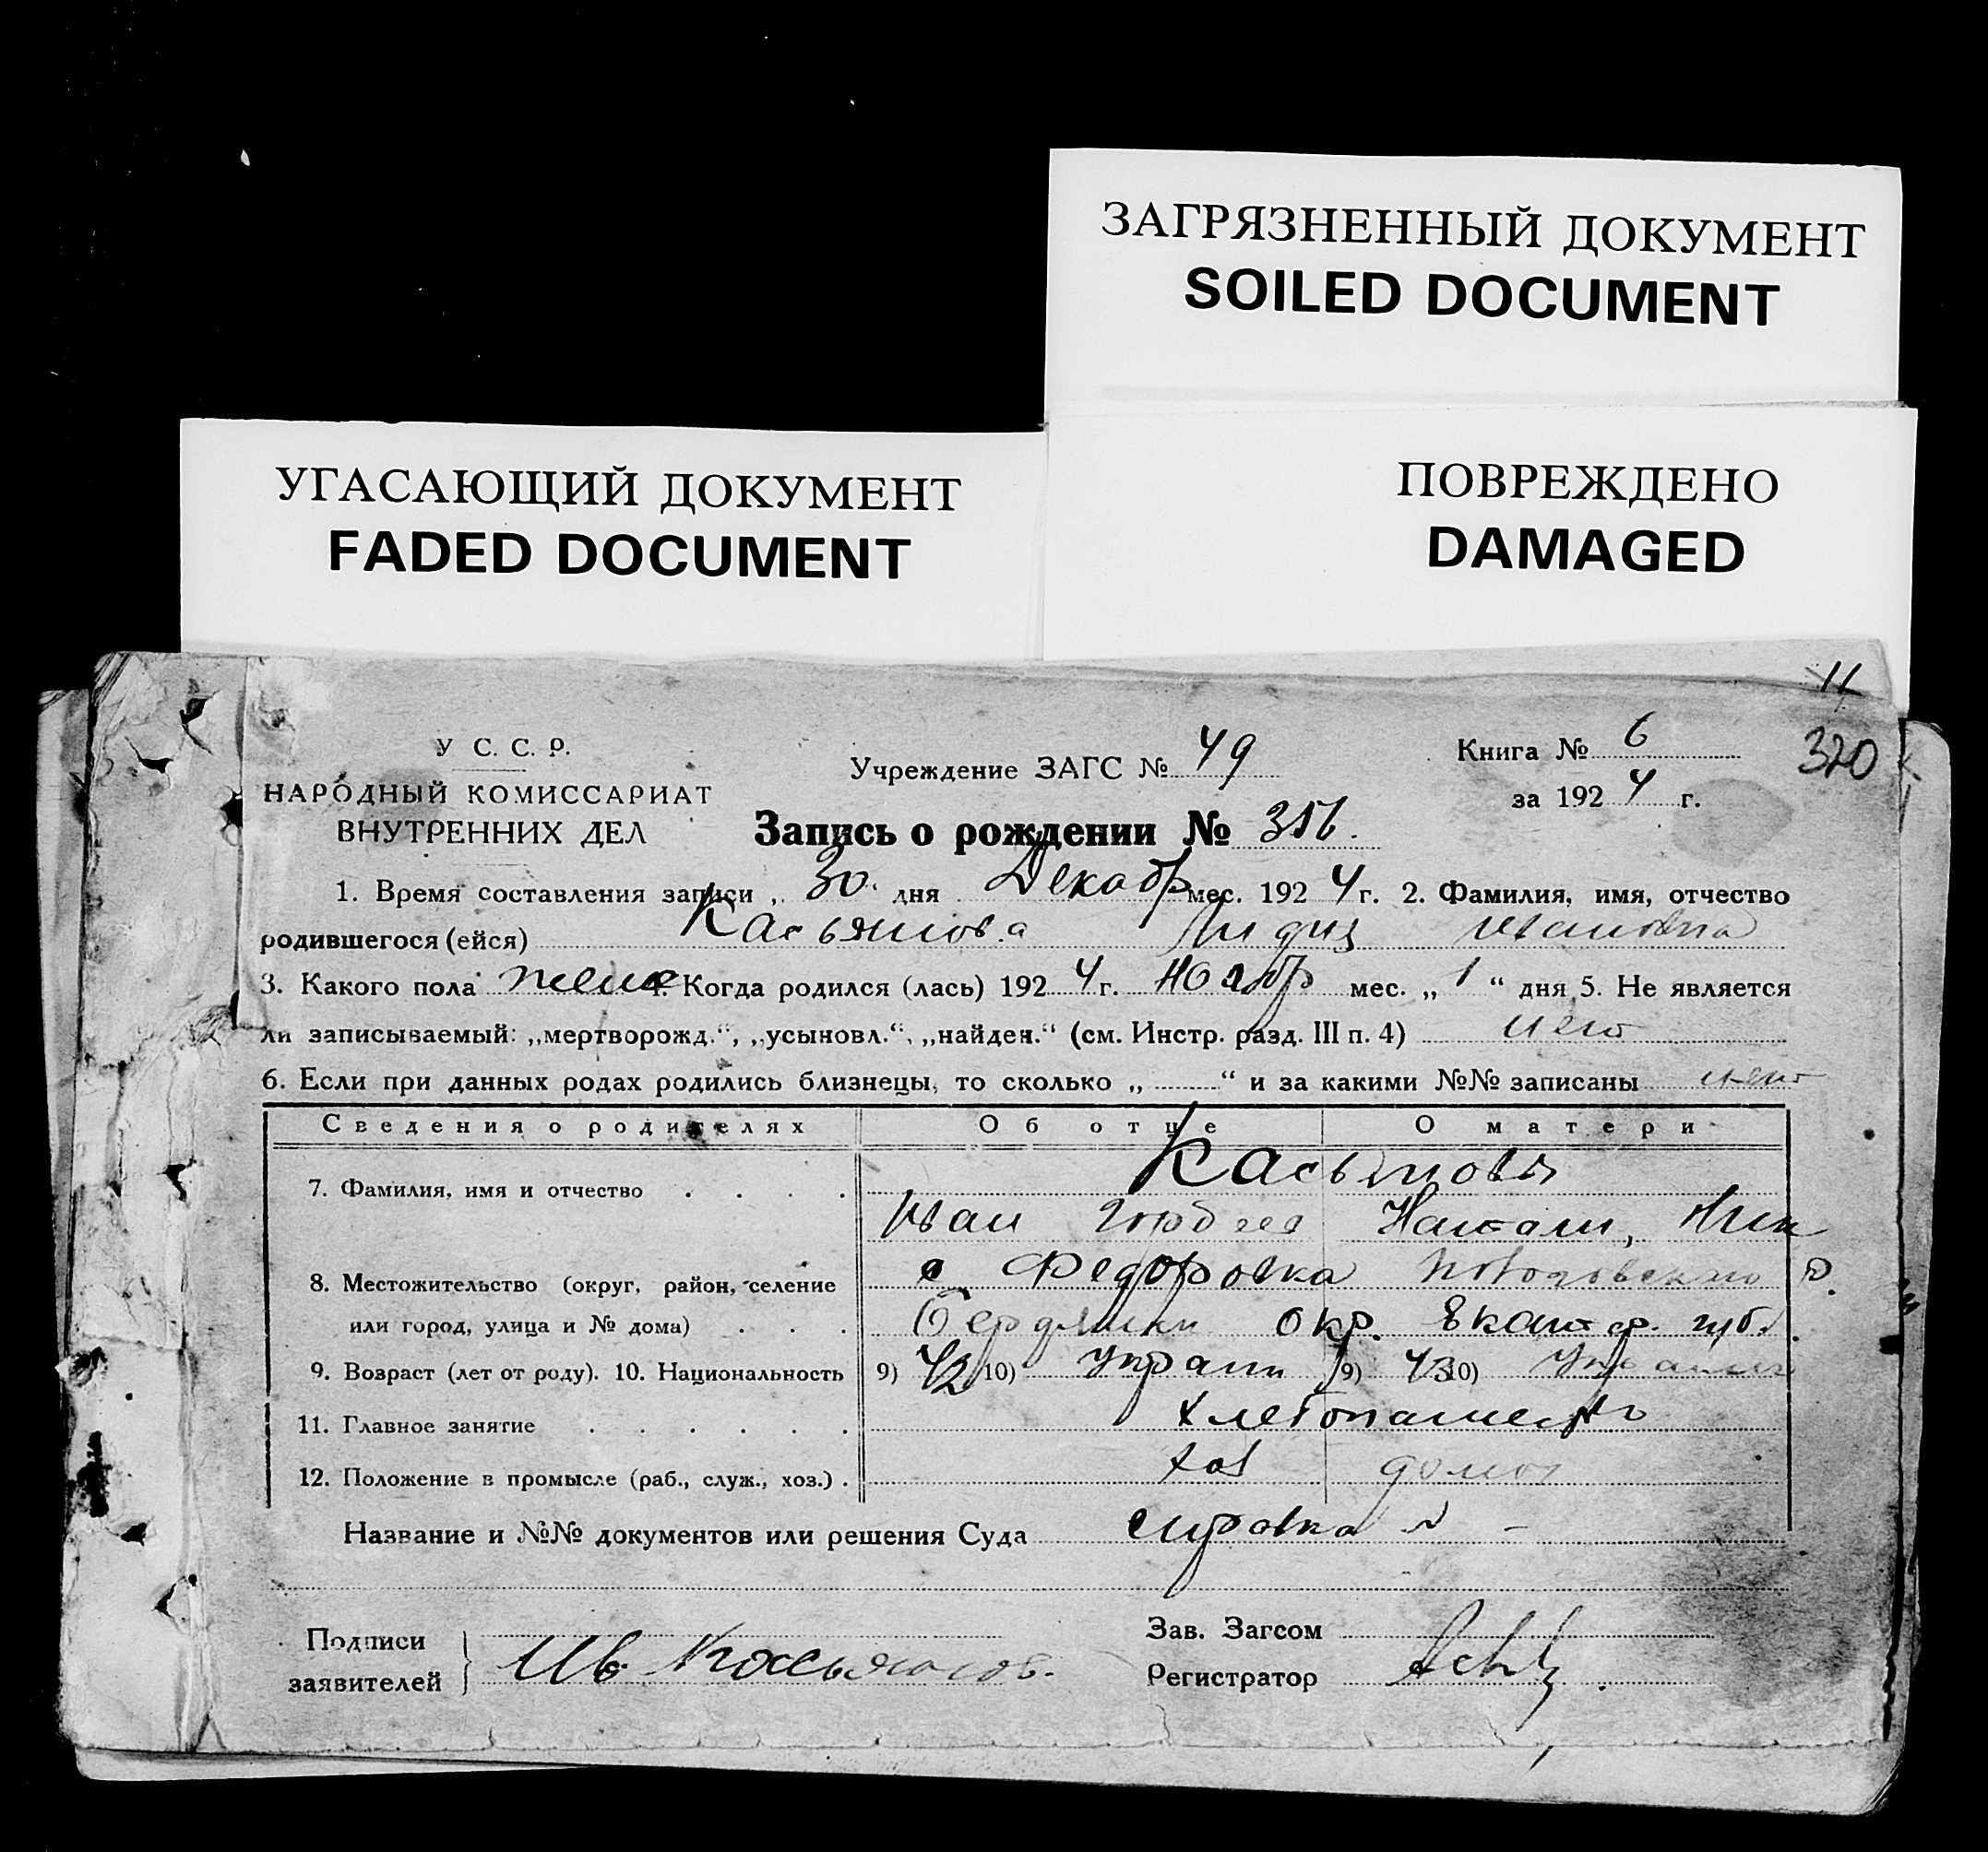 ЗАГРЯЗНЕННЫЙ ДОКУМЕНТ
SOILED DOCUMENT
УГАСАЮЩИЙ ДОКУМЕНТ
FADED DOCUMENT
ПОВРЕЖДЕНО
DAMAGED
11
320
У С. С. Р.
НАРОДНЫЙ КОМИССАРИАТ
ВНУТРЕННИХ ДЕЛ
Учреждение ЗАГС № 49
Книга № 6
за 1924 г.
Запись о рождении № 356.
1. Время составления записи „ 30. дня Декабр мес. 1924 г. 2. Фамилия, имя, отчество
родившегося (ейся) Касьянова Лидия Ивановна
3. Какого пола женс 4. Когда родился (лась) 1924 г. Ноябр мес. „ 1 “ дня 5. Не является
ли записываемый: „мертворожд.“, „усыновл.“, „найден.“ (см. Инстр. разд. III п. 4) нет
6. Если при данных родах родились близнецы, то сколько „ “ и за какими №№ записаны нет
Сведения о родителях Об отце О матери
7. Фамилия, имя и отчество Касьяновы
Иван Наталия
8. Местожительство (округ, район, селение с Федоровка р.
или город, улица и № дома) Бердянски окр. Екатер. губ.
9. Возраст (лет от роду). 10. Национальность 9) 42 10) Украин 9) 43 10) Украин
11. Главное занятие хлебопашество
12. Положение в промысле (раб., служ., хоз.) хоз домох
Название и №№ документов или решения Суда справка № –
Подписи заявителей Ив. Косьянов.
Зав. Загсом
Регистратор